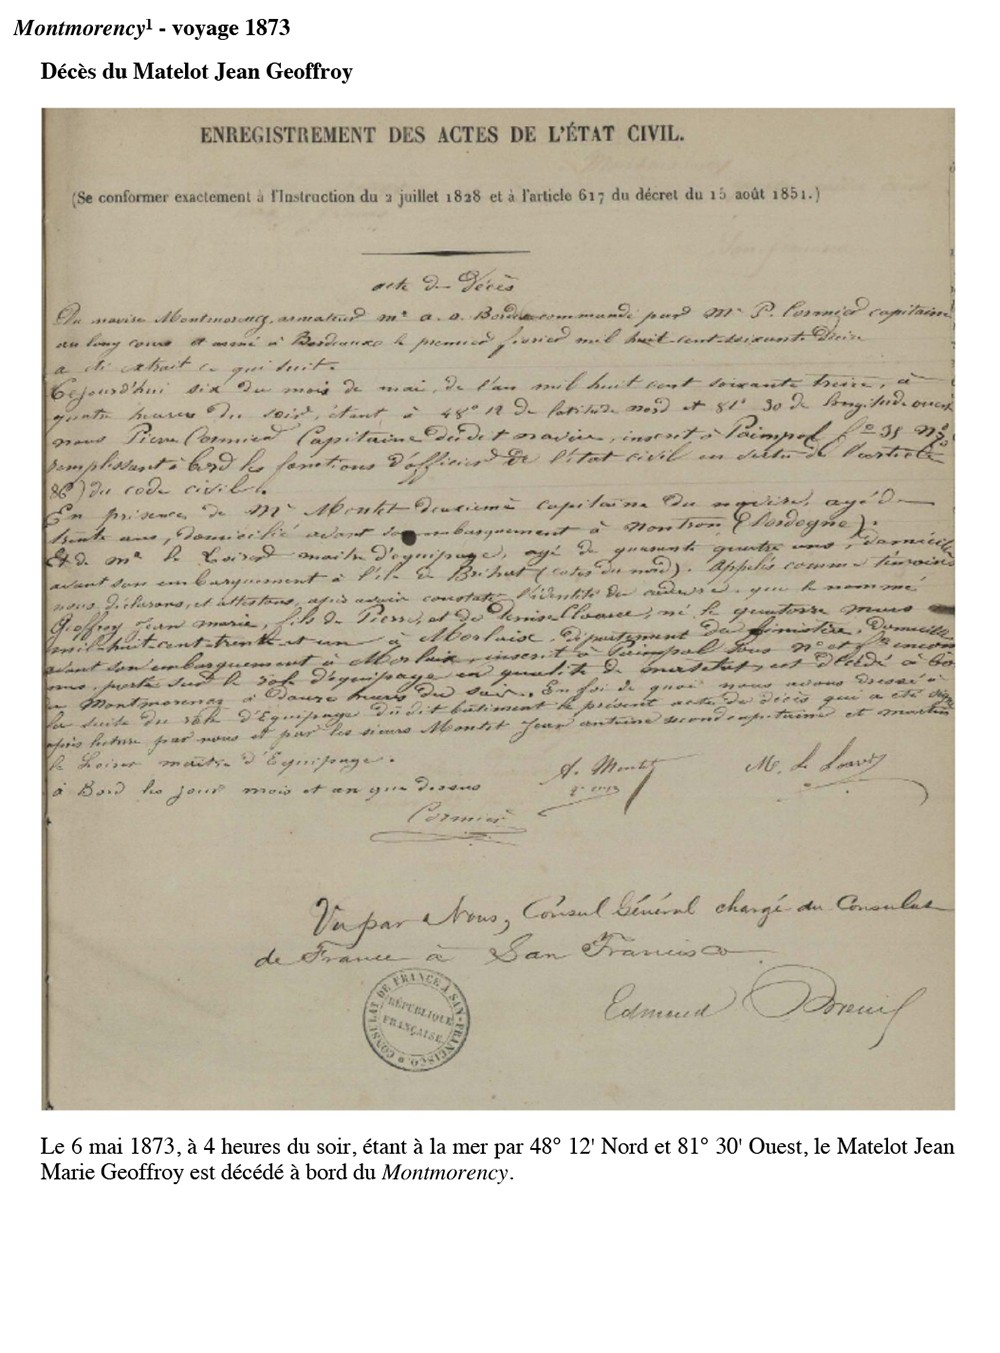 Montmorency¹ - voyage 1873
Décès du Matelot Jean Geoffroy
ENREGISTREMENT DES ACTES DE L'ÉTAT CIVIL.
(Se conformer exactement à l'Instruction du 2 juillet 1828 et à l'article 617 du décret du 15 août 1851.)
acte de Décès
Du navire Montmorency, armateur Mr a. o. Bordes commandé par Mr P. Cormier capitaine
au long cours et armé à Bordeaux le premier février mil huit-cent-soixante
a été extrait ce qui suit.
Cejourd'hui six du mois de mai, de l'an mil huit cent soixante treize, à
quatre heures du soir, étant à 48° 12 de latitude nord et 81° 30 de longitude ouest
nous Pierre Cormier Capitaine dudit navire, inscrit à Paimpol f° 38 N°
remplissant à bord les fonctions d'officier de l'état civil en vertu de l'article
86 du code civil.
En présence de Mr Montet deuxième capitaine du navire, agé de
trente ans, domicilié avant son embarquement à Nontron (Dordogne).
Et de Mr le maître d'équipage, agé de quarante quatre ans, domicilié
avant son embarquement à l'île de Bréhat (cotes du nord). Appelés comme témoins
nous déclarons, et attestons, après avoir constaté l'identité du cadavre, que le nommé
Geoffroy Jean marie, fils de Pierre, et de né le quatorze mars
mil-huit-cent-trente et un à Morlaix, département du finistère, domicilié
avant son embarquement à Morlaix, inscrit à Paimpol sous N° et f°
porté sur le rôle d'équipage en qualité de matelot, est décédé à bord
du Montmorency à heures du soir. En foi de quoi nous avons dressé à
la suite du rôle d'Equipage dudit bâtiment le présent acte de décès qui a été signé
après lecture par nous et par les sieurs Montet Jean antoine second capitaine et martin
le maître d'Equipage.
à Bord les jour mois et an que dessus
A. Montet M. Le
Cormier
Vu par Nous, Consul Général chargé du Consulat
de France à San Francisco.
Edmond Breuil
CONSULAT DE FRANCE À SAN-FRANCISCO
RÉPUBLIQUE
FRANÇAISE
Le 6 mai 1873, à 4 heures du soir, étant à la mer par 48° 12' Nord et 81° 30' Ouest, le Matelot Jean
Marie Geoffroy est décédé à bord du Montmorency.